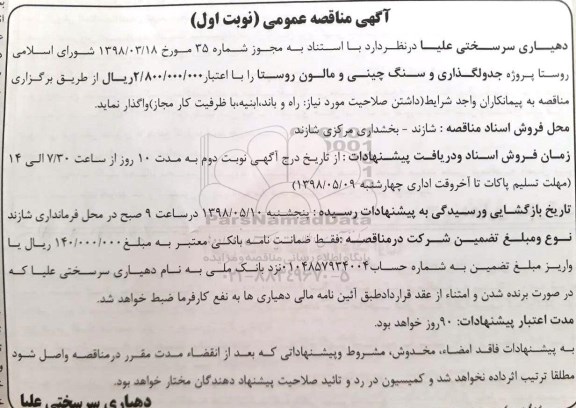 آگهی مناقصه عمومی (نوبت اول)
دهیاری سرسختی علیا درنظردارد با استناد به مجوز شماره ۳۵ مورخ ۱۳۹۸/۰۳/۱۸ شورای اسلامی
روستا پروژه جدولگذاری و سنگ چینی و مالون روستا را با اعتبار۲/۸۰۰/۰۰۰/۰۰۰ریال از طریق برگزاری
مناقصه به پیمانکاران واجد شرایط(داشتن صلاحیت مورد نیاز: راه و باند،ابنیه،با ظرفیت کار مجاز)واگذار نماید.
محل فروش اسناد مناقصه : شازند - بخشداری مرکزی شازند
زمان فروش اسناد ودریافت پیشنهادات : از تاریخ درج آگهی نوبت دوم به مدت ۱۰ روز از ساعت ۷/۳۰ الی ۱۴
(مهلت تسلیم پاکات تا آخروقت اداری چهارشنبه ۱۳۹۸/۰۵/۰۹)
تاریخ بازگشایی ورسیدگی به پیشنهادات رسیده : پنجشنبه ۱۳۹۸/۰۵/۱۰ درساعت ۹ صبح در محل فرمانداری شازند
نوع ومبلغ تضمین شرکت درمناقصه :فقط ضمانت نامه بانکی معتبر به مبلغ ۱۴۰/۰۰۰/۰۰۰ ریال یا
واریز مبلغ تضمین به شماره حساب۰۱۰۴۸۵۷۹۳۴۰۰۴نزد بانک ملی به نام دهیاری سرسختی علیا که
در صورت برنده شدن و امتناء از عقد قراردادطبق آئین نامه مالی دهیاری ها به نفع کارفرما ضبط خواهد شد.
مدت اعتبار پیشنهادات: ۹۰روز خواهد بود.
به پیشنهادات فاقد امضاء، مخدوش، مشروط وپیشنهاداتی که بعد از انقضاء مدت مقرر درمناقصه واصل شود
مطلقا ترتیب اثرداده نخواهد شد و کمیسیون در رد و تائید صلاحیت پیشنهاد دهندگان مختار خواهد بود.
دهیاری سرسختی علیا